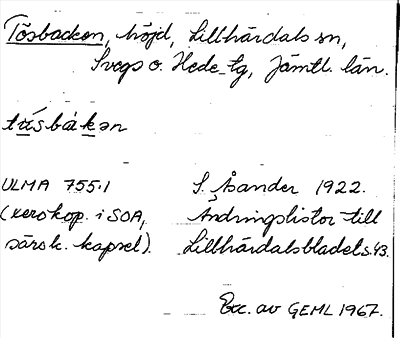 Tösbacken, höjd, Lillhärdals sn,
Svegs o. Hede tg, Jämtl. län.
tǘsbàkən
ULMA 755:1 S. Åsander 1922.
(xerokop. i SOA, Ändringslistor till
särsk. kapsel). Lillhärdalsbladet s. 43.
Exc. av GEML 1967.